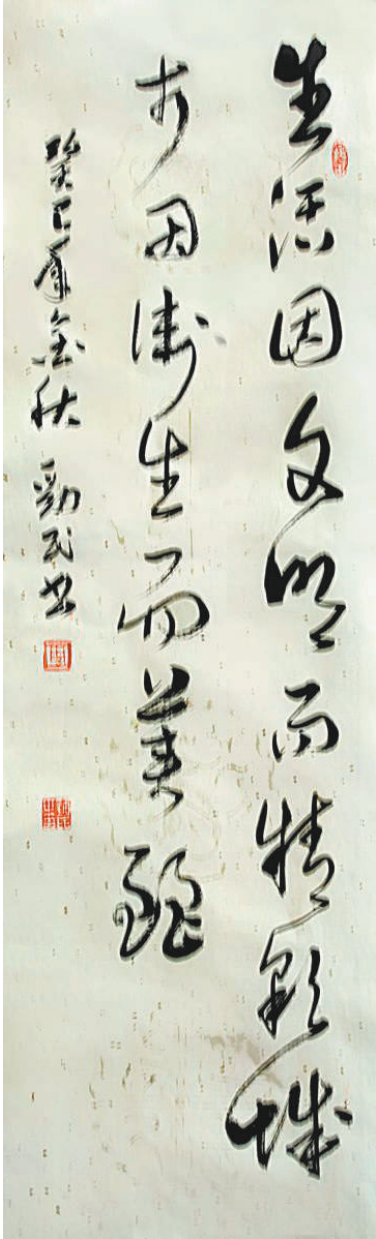 生活因文明而精彩城
市因卫生而美丽
癸巳年金秋劲民书